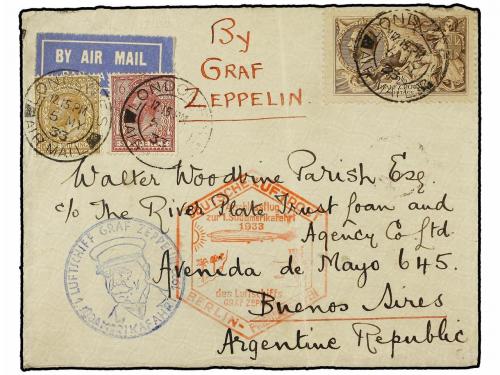 BY AIR MAIL
By
GRAF
ZEPPELIN
LONDON
AIR MAIL
33
LONDON
12.15 PM
Walter Woodbine Parish Esq
c/o The River Plate Trust Loan and
Agency Co Ltd
Avenida de Mayo 645.
Buenos Aires
Argentine Republic
DEUTSCHE LUFTPOST
zur 1. Südamerikafahrt
1933
des Luftschiffs
GRAF ZEPPELIN
BERLIN-
LUFTSCHIFF GRAF ZEPPELIN
1. SÜDAMERIKAFAHRT